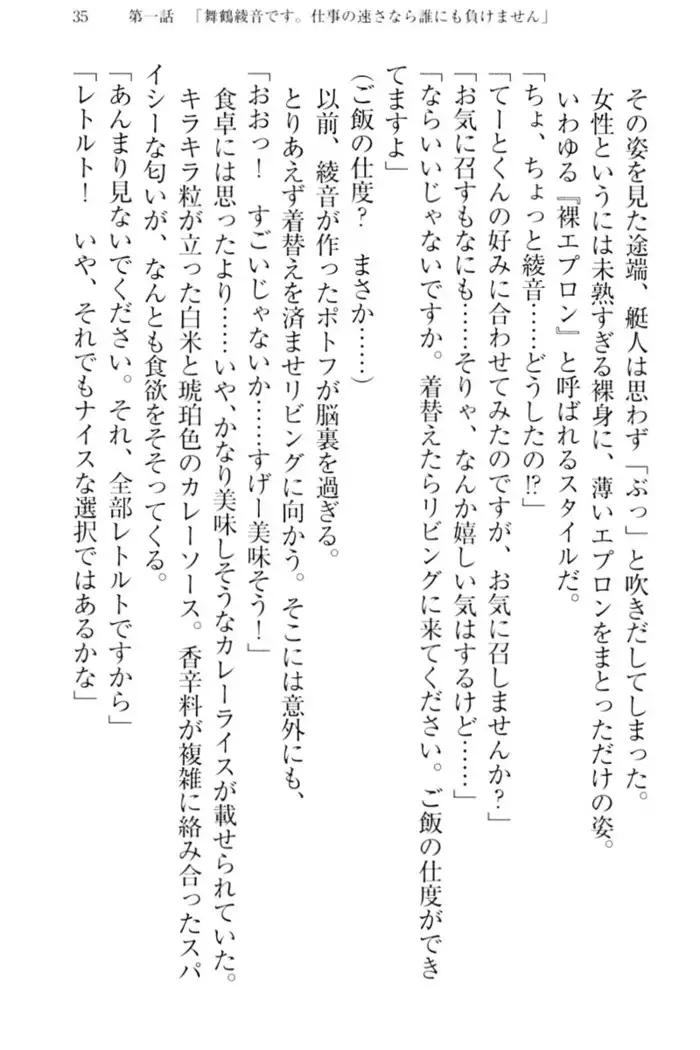 35　第一話　「舞鶴綾音です。仕事の速さなら誰にも負けません」
その姿を見た途端、艇人は思わず「ぶっ」と吹きだしてしまった。
女性というには未熟すぎる裸身に、薄いエプロンをまとっただけの姿。
いわゆる『裸エプロン』と呼ばれるスタイルだ。
「ちょ、ちょっと綾音……どうしたの⁉」
「てーとくんの好みに合わせてみたのですが、お気に召しませんか？」
「お気に召すもなにも……そりゃ、なんか嬉しい気はするけど……」
「ならいいじゃないですか。着替えたらリビングに来てください。ご飯の仕度ができ
てますよ」
(ご飯の仕度？　まさか……)
以前、綾音が作ったポトフが脳裏を過ぎる。
とりあえず着替えを済ませリビングに向かう。そこには意外にも、
「おおっ！　すごいじゃないか……すげー美味そう！」
食卓には思ったより……いや、かなり美味しそうなカレーライスが載せられていた。
キラキラ粒が立った白米と琥珀色のカレーソース。香辛料が複雑に絡み合ったスパ
イシーな匂いが、なんとも食欲をそそってくる。
「あんまり見ないでください。それ、全部レトルトですから」
「レトルト！　いや、それでもナイスな選択ではあるかな」